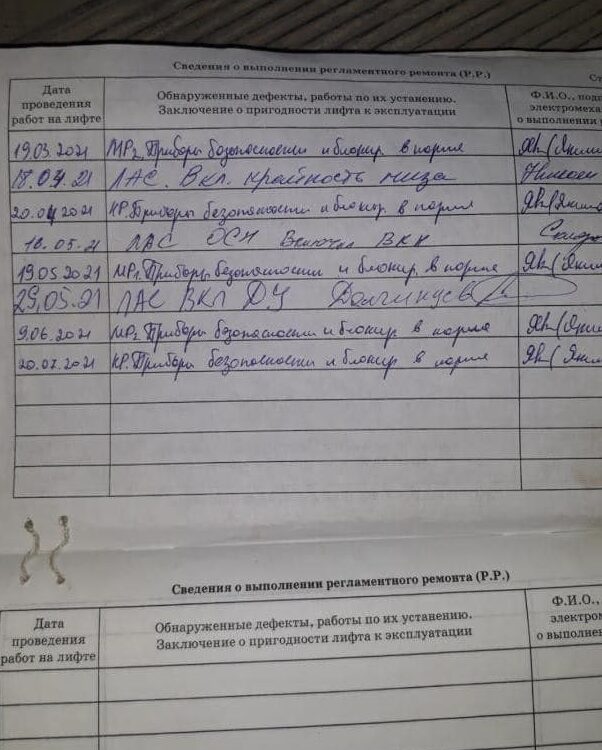 Сведения о выполнении регламентного ремонта (Р.Р.)
Ст
Дата
проведения
работ на лифте
Обнаруженные дефекты, работы по их устанению.
Заключение о пригодности лифта к эксплуатации
Ф.И.О., под
электромеха
о выполнении
19.03.2021 МР2. Приборы безопасности и блокир. в норме Як(Яким
18.04.21 ЛАС. Вкл. крайность низа
20.04.2021 КР. Приборы безопасности и блокир. в норме Як(Яким
18.05.21 ЛАС ОСН Включил ВКК
19.05.2021 МР1. Приборы безопасности и блокир. в норме Як(Яким
29.05.21 ЛАС ВКЛ ДУ
9.06.2021 МР2. Приборы безопасности и блокир в норме Як(Яким
20.07.2021 КР. Приборы безопасности и блокир в норме Як(Яким
Сведения о выполнении регламентного ремонта (Р.Р.)
Дата
проведения
работ на лифте
Обнаруженные дефекты, работы по их устанению.
Заключение о пригодности лифта к эксплуатации
Ф.И.О.,
электром
о выполнен